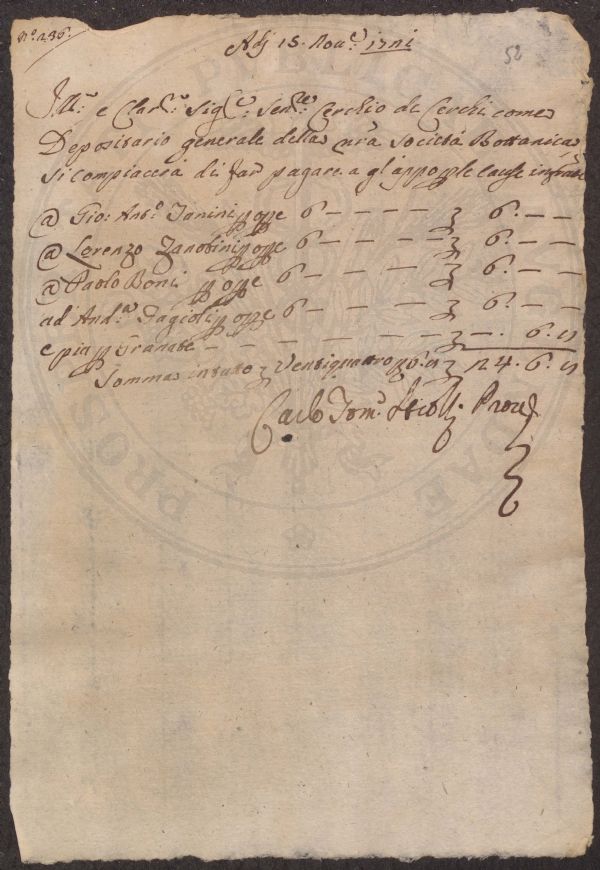 N.º 236.
Adj 15. Nou.e 1741
52
Ill.mo e Clar.mo Sig.re Sen.re Cerchio de Cerchi come
Depositario generale della nrã Società Bottanica,
Si compiacerà di far pagare a gl'appo ple cause infratte
@ Gio: Ant.º Janini p opõe 6 — — — — 6. — —
@ Lorenzo Zanobini p opõe 6 — — — — 6. — —
@ Paolo Boni p opõe 6 — — — — 6. — —
ad And.a Fagioli p opõe 6 — — — — 6. — —
e più p Granate — — — — — — — —. 6. 8
Somma in tutto Ventiquattro 6. 8 24. 6. 8
Carlo Tom.º Proue.
PUBLIC
PROS